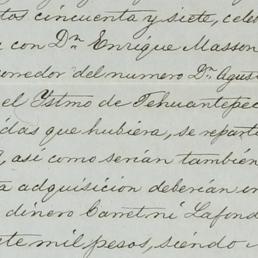 tos cincuenta y siete, cele
a con Dn Enrique Masson
corredor del numero Dn Agus
el Ystmo de Tehuantepec
idas que hubiera, se reparte
así como serían también
a adquisicion deberían en
dinero Carret ni Lafond
te mil pesos, siendo